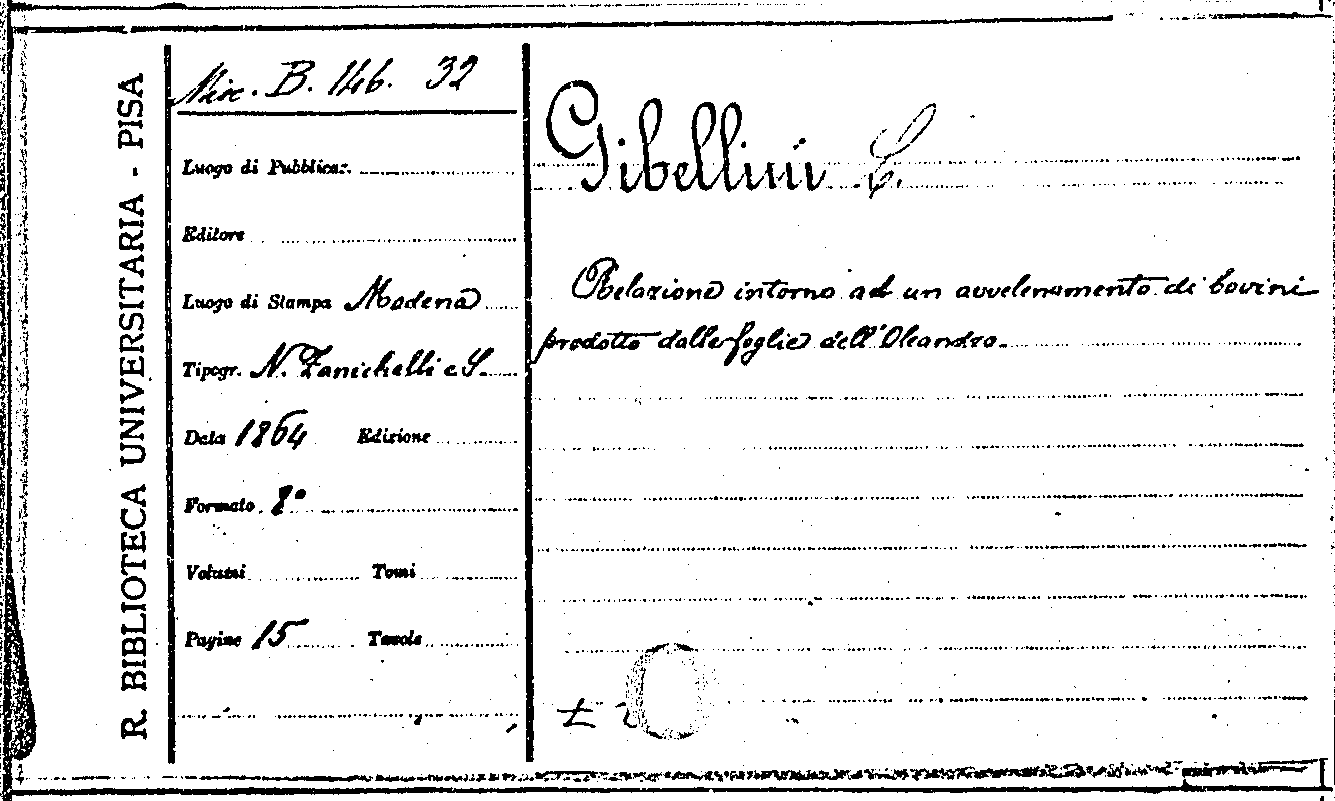 R. BIBLIOTECA UNIVERSITARIA - PISA
Misc. B. 146. 32
Luogo di Pubblicaz.
Editore
Luogo di Stampa Modena
Tipogr. N. Zanichelli e S.
Data 1864 Edizione
Formato 8°
Volumi Tomi
Pagine 15 Tavole
Gibellini C.
Relazione intorno ad un avvelenamento di bovini
prodotto dalle foglie dell'Oleandro.